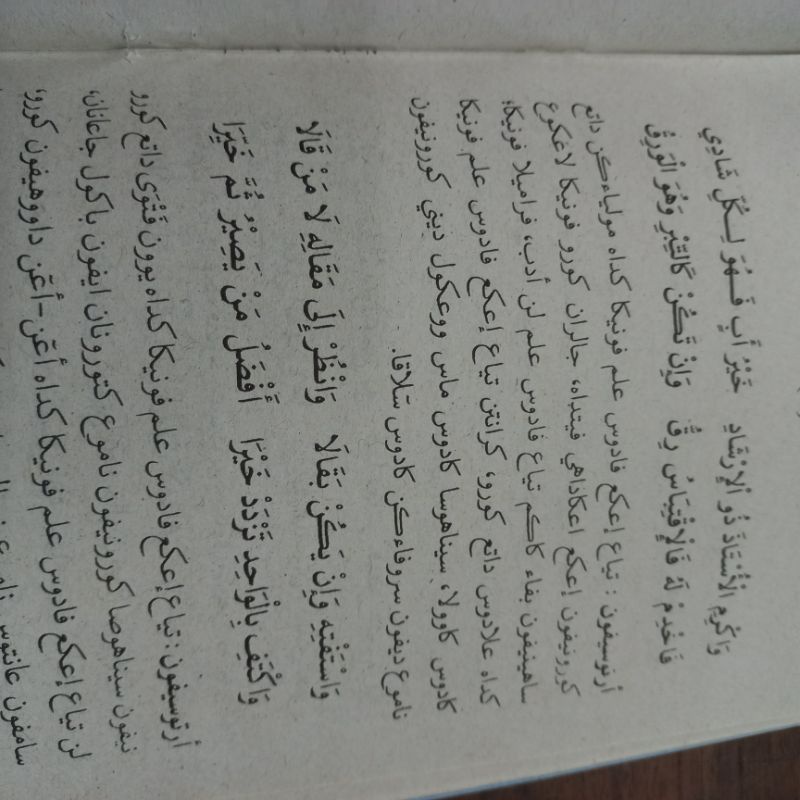 وَاكْرِمِ الْأُسْتَاذَ ذُو الْإِرْشَادِ خَيْرُ أَبٍ فَهُوَ لِكُلِّ شَادِي
فَاخْدِمْ لَهُ فَالْإِقْتِبَاسُ رِقُّ وَإِنْ تَكُنْ كَالتِّبْرِ وَهُوَ الْوَرِقُ
أرتوسيفون : تياع إعكع فادوس علم فونيكا كداه مولياءكن داتع
كورونيفون إعكع اعكاداهي فيتداه، جالران كورو فونيكا لاعكوع
ساهينيفون بفاء كاكم تياع فادوس علم لن أدب، فراميلا فونيكا،
كداه علادوس داتع كورو، كرانتن تياع إعكع فادوس علم فونيكا
كادوس كاوولا، سيناهوسا كادوس ماس ووعكول ديني كورونيفون
ناموع ديفون سروفاءكن كادوس سلاقا.
وَاسْتَفْتِهِ وَإِنْ يَكُنْ بَقَالَا وَانْظُرْ إِلَى مَقَالِهِ لَا مَنْ قَالَا
وَاكْتَفِ بِالْوَاحِدِ تَزْدَدْ خَيْرًا أَفْضَلُ مَنْ يَصِيْرُ ثُمَّ خَيِّرَا
أرتوسيفون : تياع إعكع فادوس علم فونيكا كداه يوون فَتْوَى داتع كورو
نيفون سيناهوصا كورونيفون ناموع كتورونان ايفون باكول جاعانان،
لن تياع إعكع فادوس علم فونيكا كداه أعَّن-أعَّن داووهيفون كورو،
سامفون عانتوس